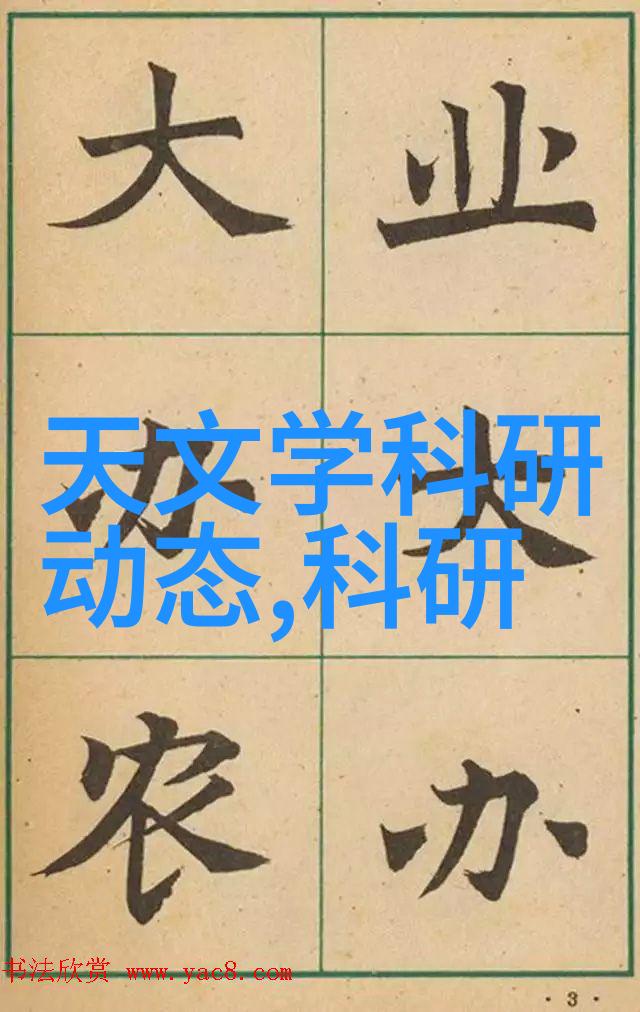 大办农
业大办
天文学科研
动态,科研
书法欣赏 www.yac8.com
· 3 ·